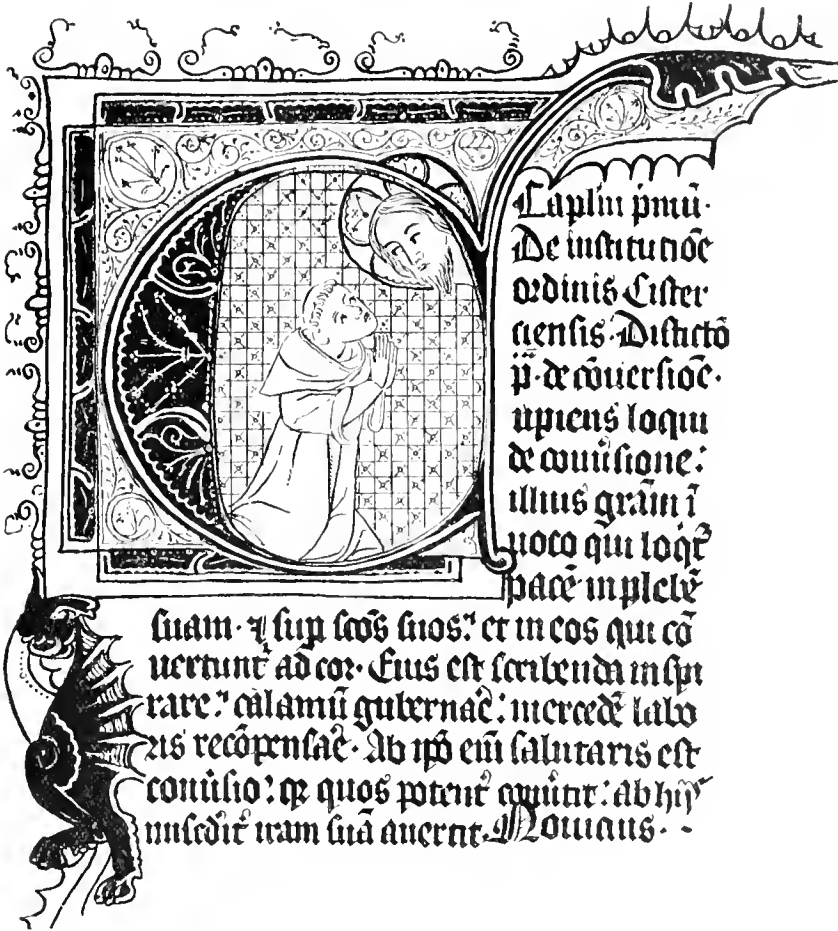 Caplm pmū·
De institutiōe
ordinis Cister
ciensis· Distictō
p̄·de cōuersiōe·
upiens loqui
de conūsione:
illius grām ī
uoco qui loqt᷑
pacē in plebē
suam· ⁊ sup scōs suos: et in eos qui cō
uertunt᷑ ad cor· Eius est scribenda inspi
rare: calamū gubernāe: mercedē labo
ris recōpensāe· Ab ipō eīm salutaris est
conūsio: quos potent᷑ conūtit: ab hijs
misedit᷑ iram suā auertit. Nouicius·